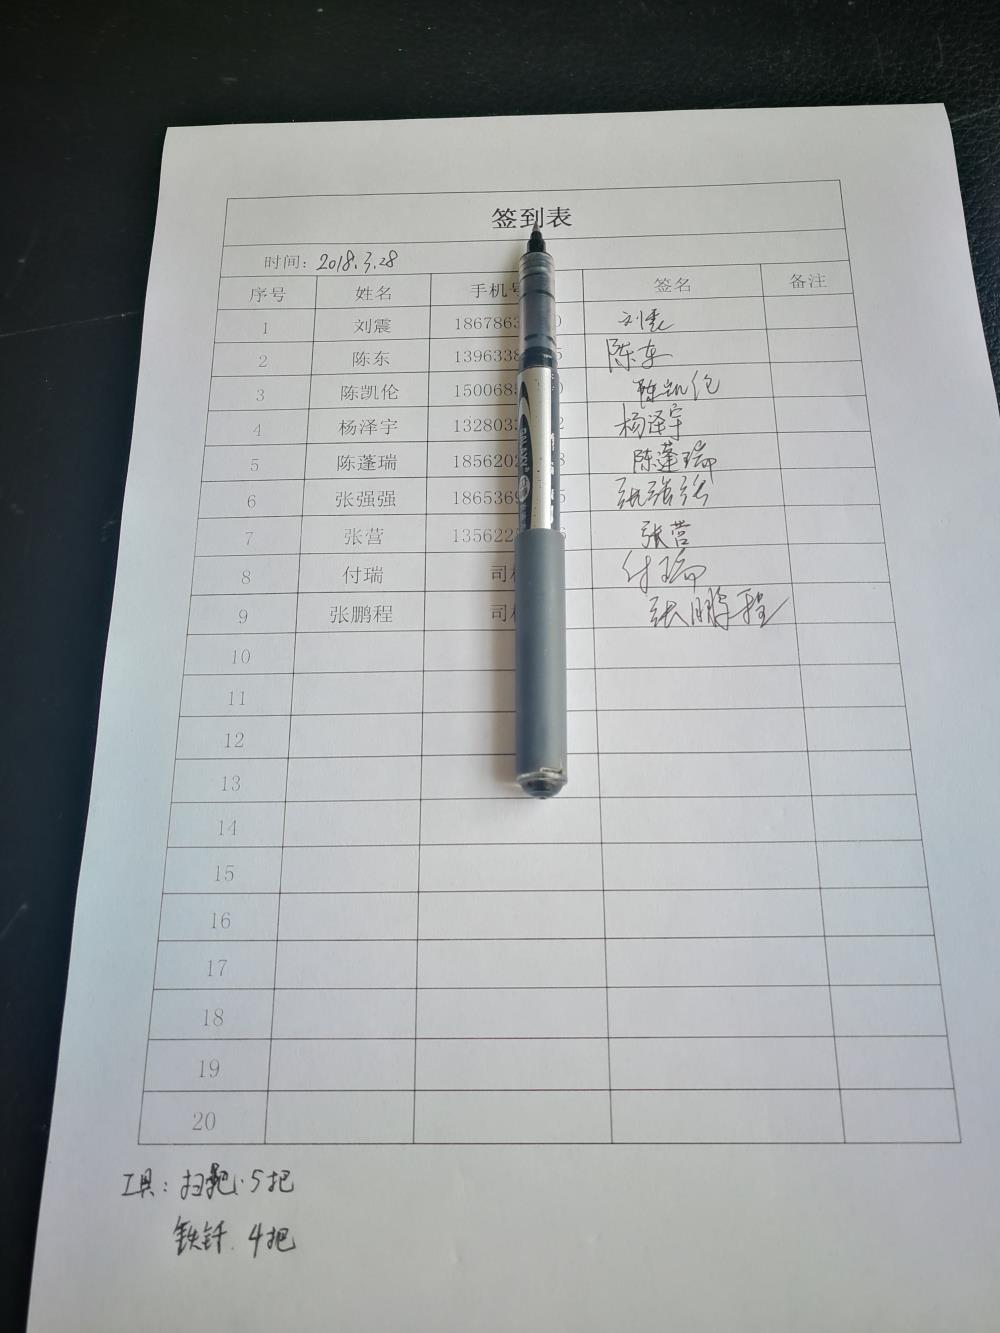 签到表
时间：2018.3.28
序号 姓名 手机号 签名 备注
1 刘震 1867863 0 刘震
2 陈东 1396338 5 陈东
3 陈凯伦 150068 0 陈凯伦
4 杨泽宇 132803 2 杨泽宇
5 陈蓬瑞 185620 8 陈蓬瑞
6 张强强 186536 5 张强强
7 张营 135622 6 张营
8 付瑞 司 付瑞
9 张鹏程 司 张鹏程
10
11
12
13
14
15
16
17
18
19
20
工具：扫把.5把
铁钎.4把